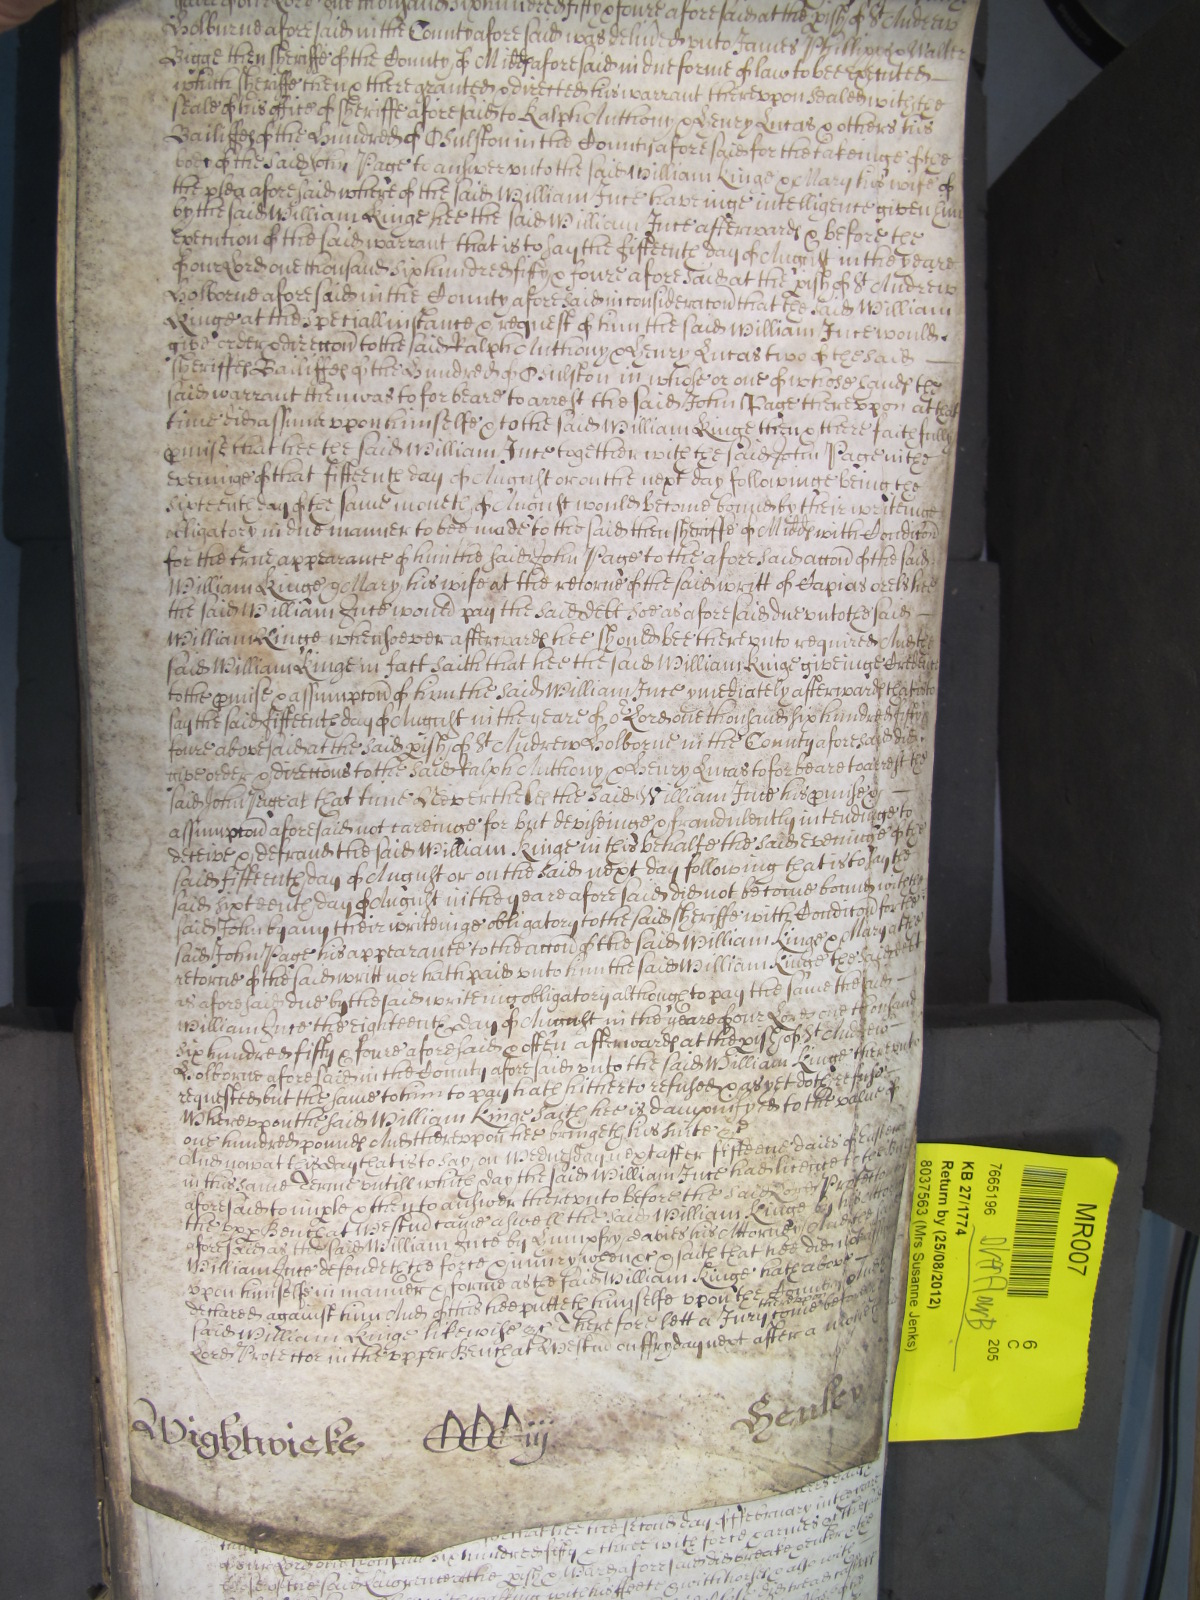 yeare of our Lord one thousand six hundred fifty & foure aforesaid at the pish of St Andrew
Holburne aforesaid in the County aforesaid was deliued vnto James Phillipps & Walter
Bigge then Sheriffe of the County of Midd aforesaid in due forme of law to bee executed
which Sheriffe then & there granted & directed his warrant therevpon sealed with the
seale of his office of Sheriffe aforesaid to Ralph Anthony & Henry Lucas & others his
Bailiffes of the Hundred of Osulston in the County aforesaid for the takeinge of the
body of the said John Page to answer vnto the said William Kinge & Mary his wife of
the plea aforesaid whereof the said William Ince haveinge intelligence given him
by the said William Kinge hee the said William Ince afterwards & before the
execution of the said warrant that is to say the fifteenth day of August in the yeare
of our Lord one thousand six hundred fifty & foure aforesaid at the pish of St Andrew
Holborne aforesaid in the County aforesaid in consideracon that the said William
Kinge at the speciall instance & request of him the said William Ince would
give order & direccon to the said Ralph Anthony & Henry Lucas two of the said
Sheriffes Bailiffes of the Hundred of Osulston in whose or one of whose hands the
said warrant then was to forbeare to arrest the said John Page therevpon at that
time did assume vpon himselfe & to the said William Kinge then & there faithfully
pmise that hee the said William Ince together with the said John Page in the
eveninge of that fifteenth day of August or on the next day followinge being the
sixteenth day of the same moneth of August would become bound by their writeinge
obligatory in due manner to bee made to the said then Sheriffe of Midd with Condicon
for the true appearance of him the said John Page to the aforesaid accon of the said
William Kinge & Mary his wife at the retorne of the said writt of Capias or els hee
the said William Ince would pay the said debt soe as aforesaid due vnto the said
William Kinge whensoever afterwards hee should bee therevnto required And the
said William Kinge in fact saith that hee the said William Kinge giveinge Creditt
to the pmise & assumpcon of him the said William Ince ymediately afterwards that is to
say the said fifteenth day of August in the yeare of or Lord one thousand six hundred fifty
foure abovesaid at the said pish of St Andrew Holborne in the County aforesaid did
give order & direccons to the said Ralph Anthony & Henry Lucas to forbeare to arrest the
said John Page at that time Neverthelesse the said William Ince his pmise &
assumpcon aforesaid not careinge for but deviseinge & fraudulently intendinge to
deceive & defraud the said William Kinge in this behalfe the said eveninge of the
said fifteenth day of August or on the said next day following that is to say the
said sixteenth day of August in the yeare aforesaid did not become bound with the
said John by any their writeinge obligatory to the said Sheriffe with Condicon for the
said John Page his appearance to the accon of the said William Kinge & Mary at the
retorne of the said writt nor hath paid vnto him the said William Kinge the said debt
as aforesaid due by the said writeing obligatory although to pay the same the said
William Ince the eighteenth day of August in the yeare of our Lord one thousand
six hundred fifty & foure aforesaid & often afterwards at the pish of St Andrew
Holborne aforesaid in the County aforesaid vnto the said William Kinge therevnto
requested but the same to him to pay hath hitherto refused & as yet doth refuse
Wherevpon the said William Kinge saith hee is dampnifyed to the value of
one hundred pounds And therevpon hee bringeth his suite &c
And now at this day that is to say on Wednesday next after fifteene daies of Easter
in this same Terme vntill which day the said William Ince had licence to
aforesaid to imple & then to answer therevnto before the said Lord Protector
the vpp Bench at Westm came aswell the said William Kinge by his Attorney
aforesaid as the said William Ince by Humfry Davies his Attorney And the
William Ince defendeth the force & iniury when &c & saith that hee did not
vpon himselfe in manner & forme as the said William Kinge hath above
declared against him And of this hee putteth himselfe vpon the Country And the
said William Kinge likewise &c Therefore lett a Jury therevpon come before the
Lord Protector in the vpper Bench at Westm on ffryday next after a moneth
Wightwicke CCCiij Henley
that hee the second day of ffebruary in the yeare
of our Lord one thousand six hundred fifty & three with force & armes
MR007
7665196
6
C
205
KB 27/1774
Return by (25/08/2012)
8037563 (Mrs Susanne Jenks)